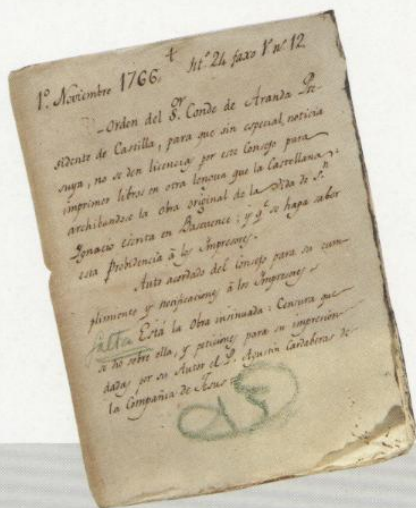 1º. Noviembre 1766. + ht.º 24 faxo 1º nº 12.
Orden del Sor. Conde de Aranda Pre-
sidente de Castilla, para que sin especial noticia
suya, no se den licencias por este Consejo para
imprimir libros en otra lengua que la Castellana;
archibandose la obra original de la Vida de Sn.
Ignacio escrita en Bascuence; y qe. se haga saber
esta Probidencia à los Impresores.
Auto acordado del Consejo para su cum-
plimiento y notificaciones à los Impresores.
falta Està la Obra insinuada: Censura que
se diò sobre ella, y peticiones para su impresion
dadas por su Autor el P. Agustin Cardaberaz de
la Compañia de Jesus